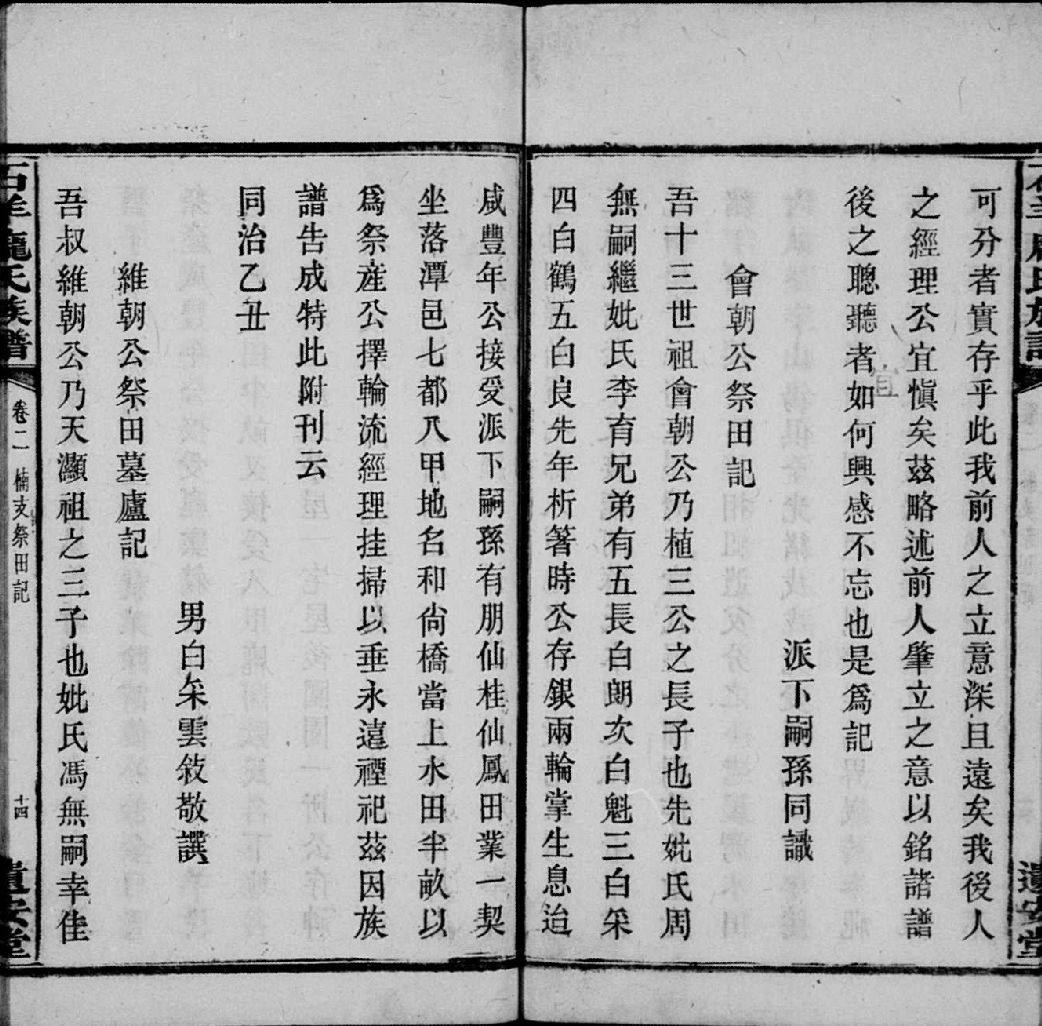 可分者實存乎此我前人之立意深且遠矣我後人
之經理公宜慎矣茲略述前人肇立之意以銘諸譜
後之聰聽者如何興感不忘也是為記
派下嗣孫同識
會朝公祭田記
吾十三世祖會朝公乃植三公之長子也先妣氏周
無嗣繼妣氏李育兄弟有五長白朗次白魁三白采
四白鶴五白良先年析箸時公存銀兩輪掌生息迨
咸豐年公接受派下嗣孫有朋仙桂仙鳳田業一契
坐落潭邑七都八甲地名和尚橋當上水田半畝以
為祭産公擇輪流經理挂掃以垂永遠禋祀茲因族
譜告成特此附刊云
同治乙丑
維朝公祭田墓廬記
男白采雲敘敬譔
吾叔維朝公乃天灝祖之三子也妣氏馮無嗣幸佳
石羊龐氏族譜
卷二 楠支祭田記
十四
遺安堂